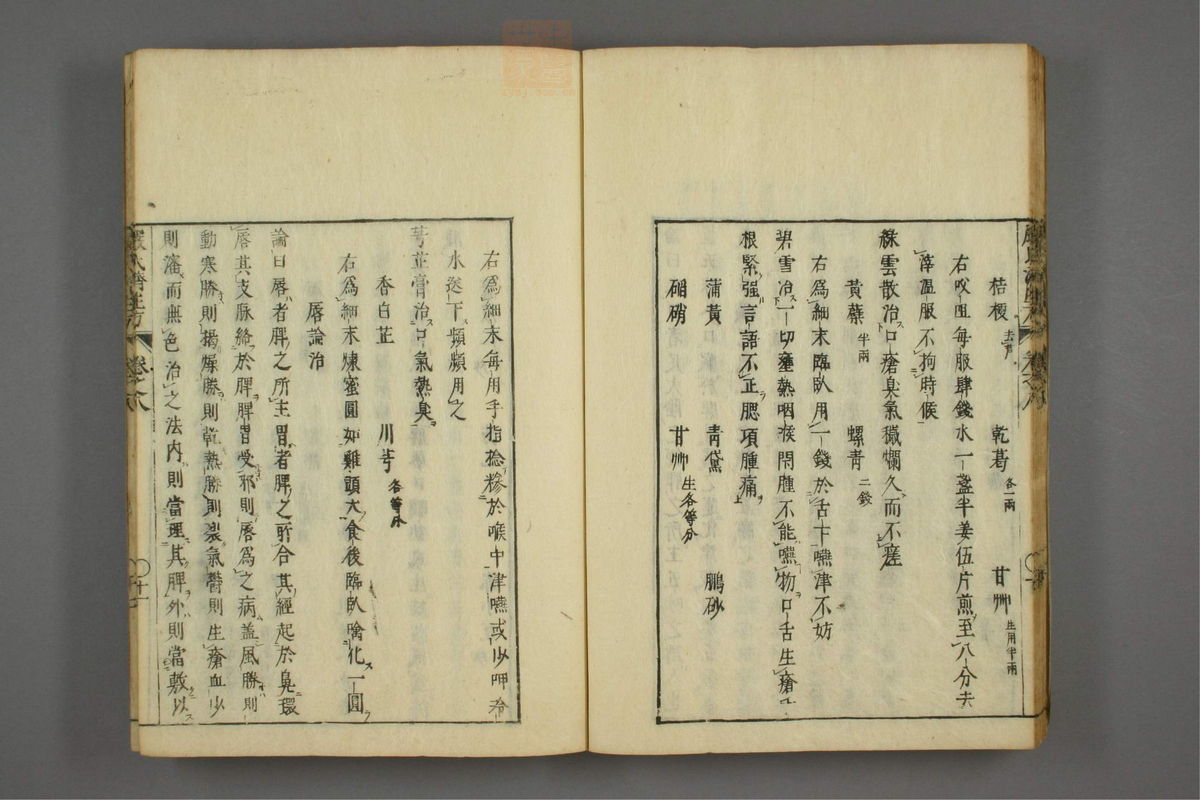 桔梗去芦 乾葛各一兩 甘艸生用半兩
右㕮咀每服肆錢水一盞半姜伍片煎至八分去
滓溫服不拘時候
綠雲散治口瘡臭氣穢爛久而不瘥
黃蘗半兩 螺青二錢
右爲細末臨臥用一錢於舌下嚥津不妨
碧雪治一切壅熱咽喉閉腫不能嚥物口舌生瘡舌
根緊强言語不正腮項腫痛
蒲黃 青黛 鵬砂
硝 甘艸生各等分
右爲細末每用手指捻糝於喉中津嚥或少呷冷
水送下頻頻用之
芎芷膏治口氣熱臭
香白芷 川芎各等分
右爲細末煉蜜圓如雞頭大食後臨臥噙化一圓
唇論治
論曰唇者脾之所主胃者脾之所合其經起於鼻環
唇其支脉絡於脾脾胃受邪則唇爲之病盖風勝則
動寒勝則揭燥勝則乾熱勝則裂氣鬱則生瘡血少
則瀋而無色治之法内則當理其脾外則當敷以
嚴氏濟生方 卷之八